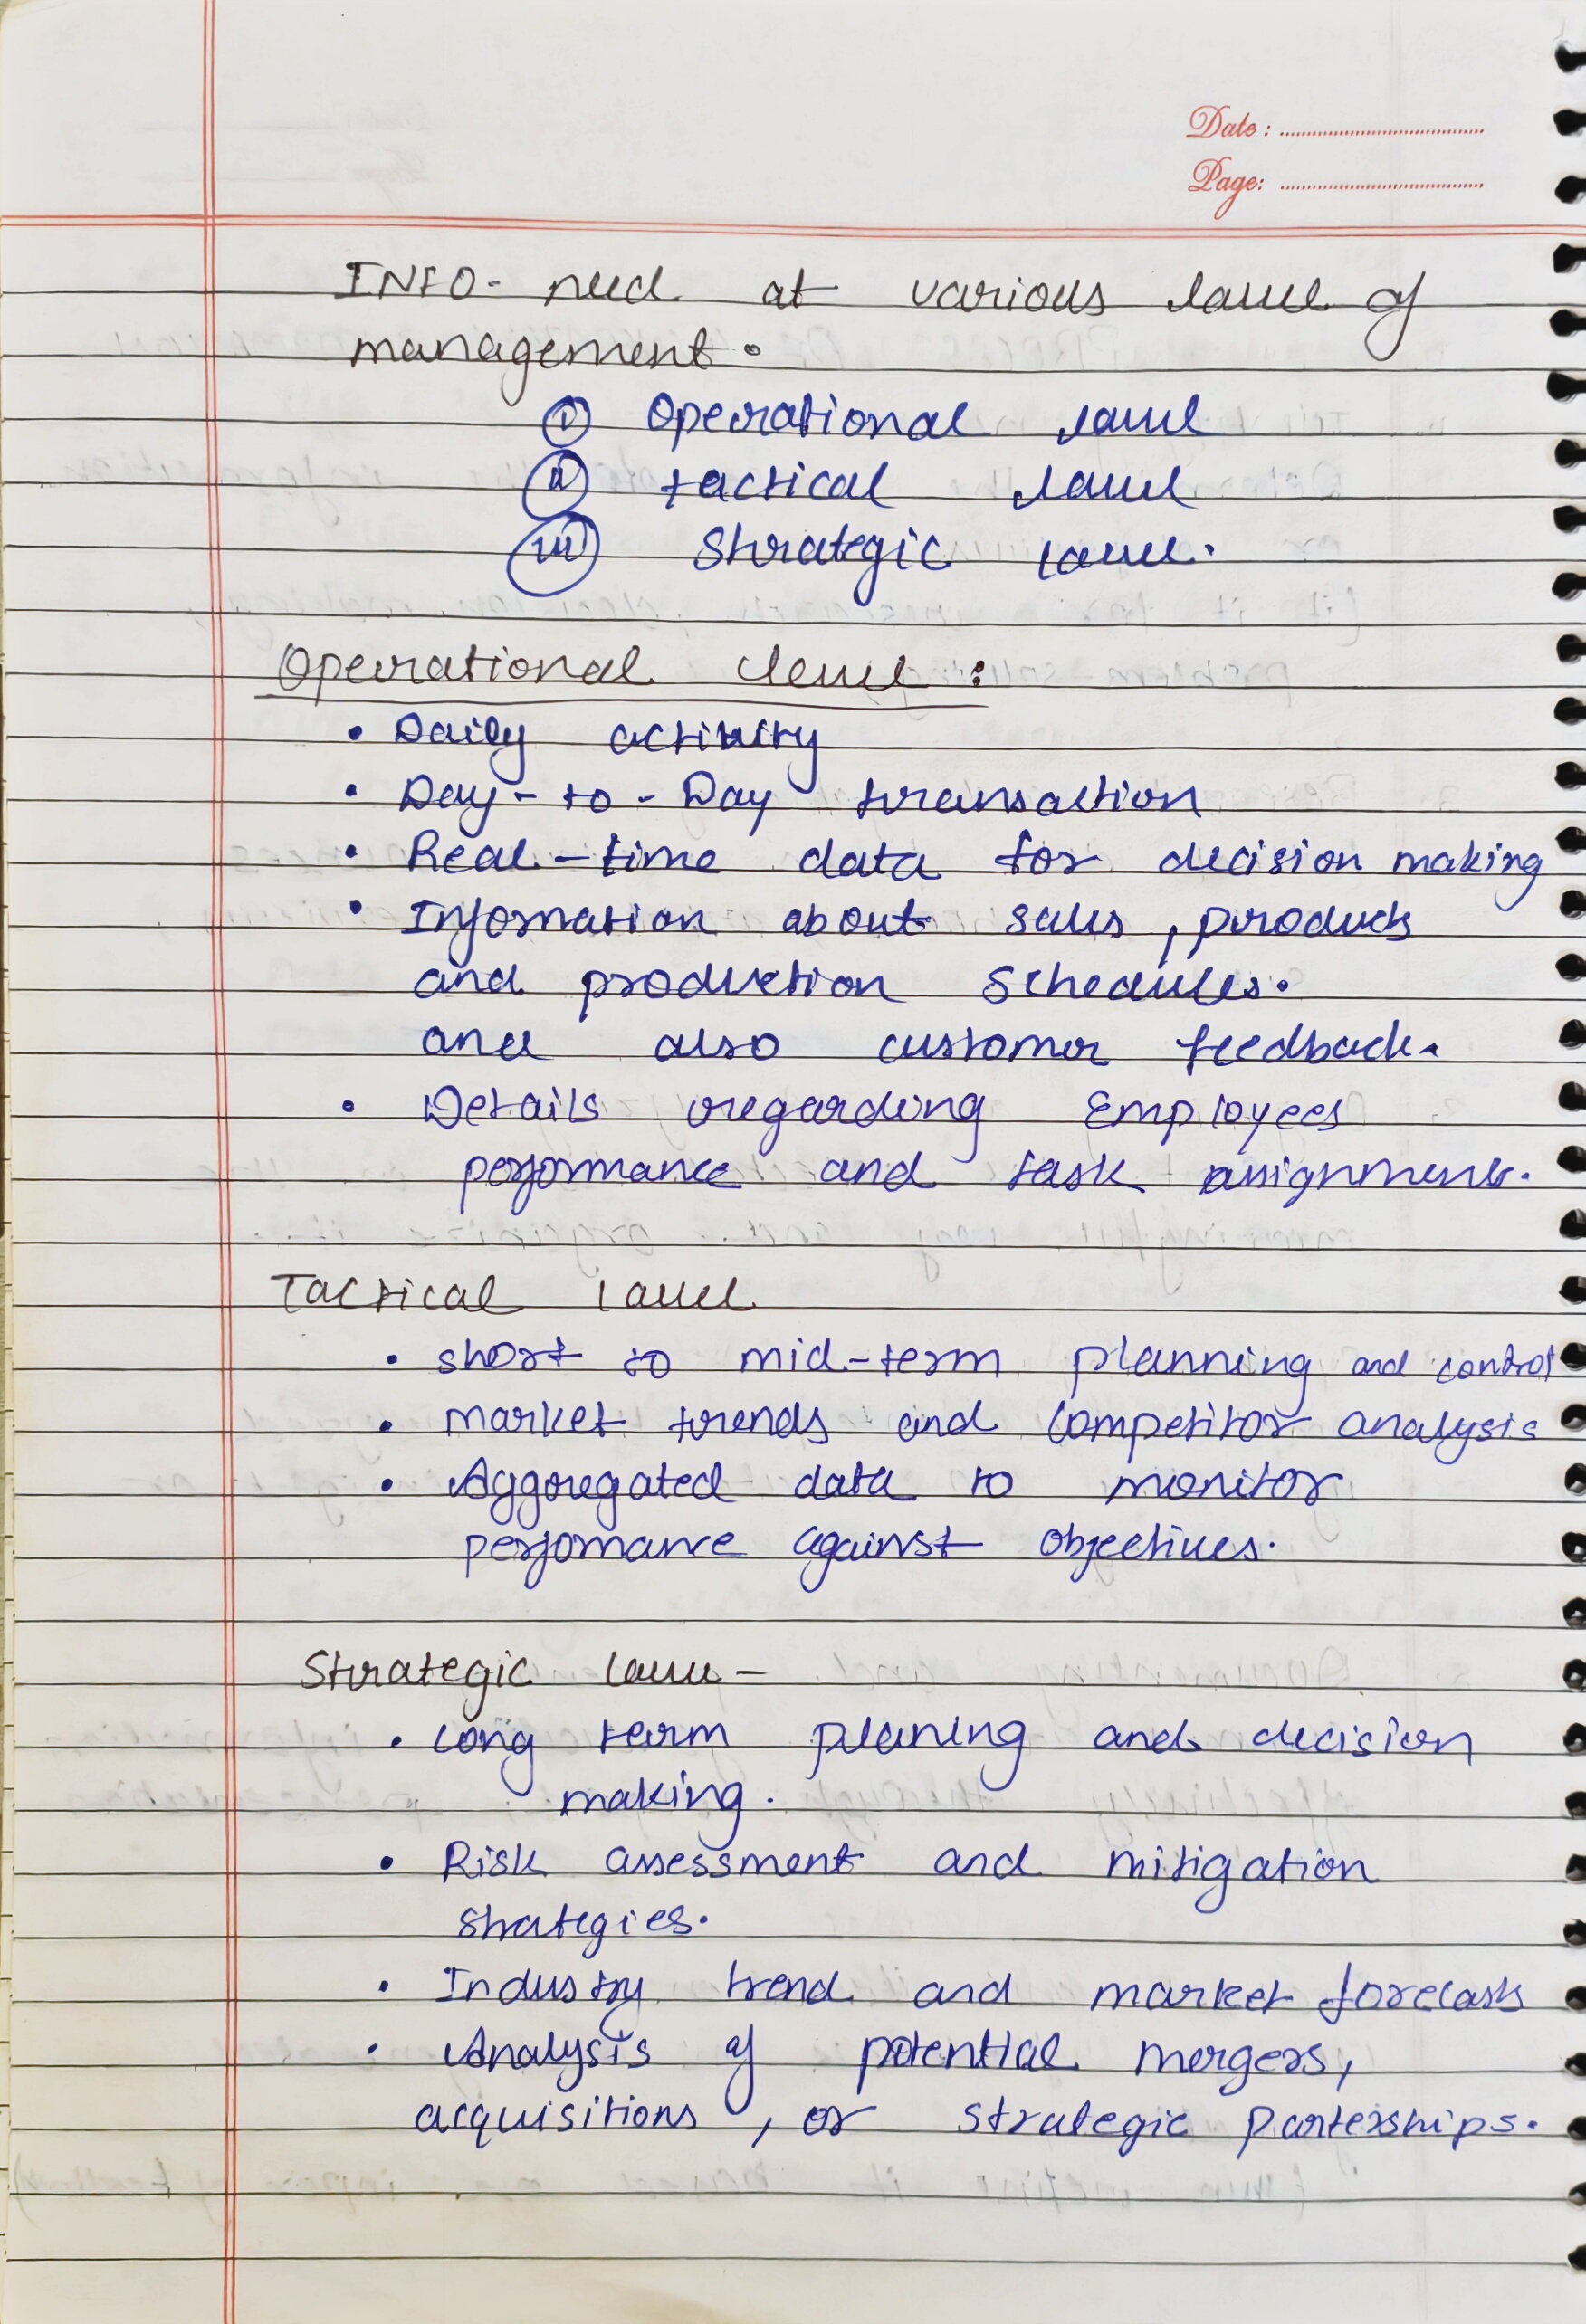 Date :
Page:
INFO- need at various level of
management.
(i) Operational level
(ii) tactical level
(iii) Strategic level.
Operational level :
• Daily activity
• Day-to-Day transaction
• Real-time data for decision making
• Information about sales, products
and production schedules.
and also customer feedback.
• Details regarding Employees
performance and task assignments.
Tactical level
• short to mid-term planning and control
• market trends and Competitor analysis
• Aggregated data to monitor
perfomance against objectives.
Strategic level -
• long term planing and decision
making.
• Risk assessment and mitigation
strategies.
• Industry trend and market forecasts
• Analysis of potential mergers,
acquisitions, or strategic parterships.